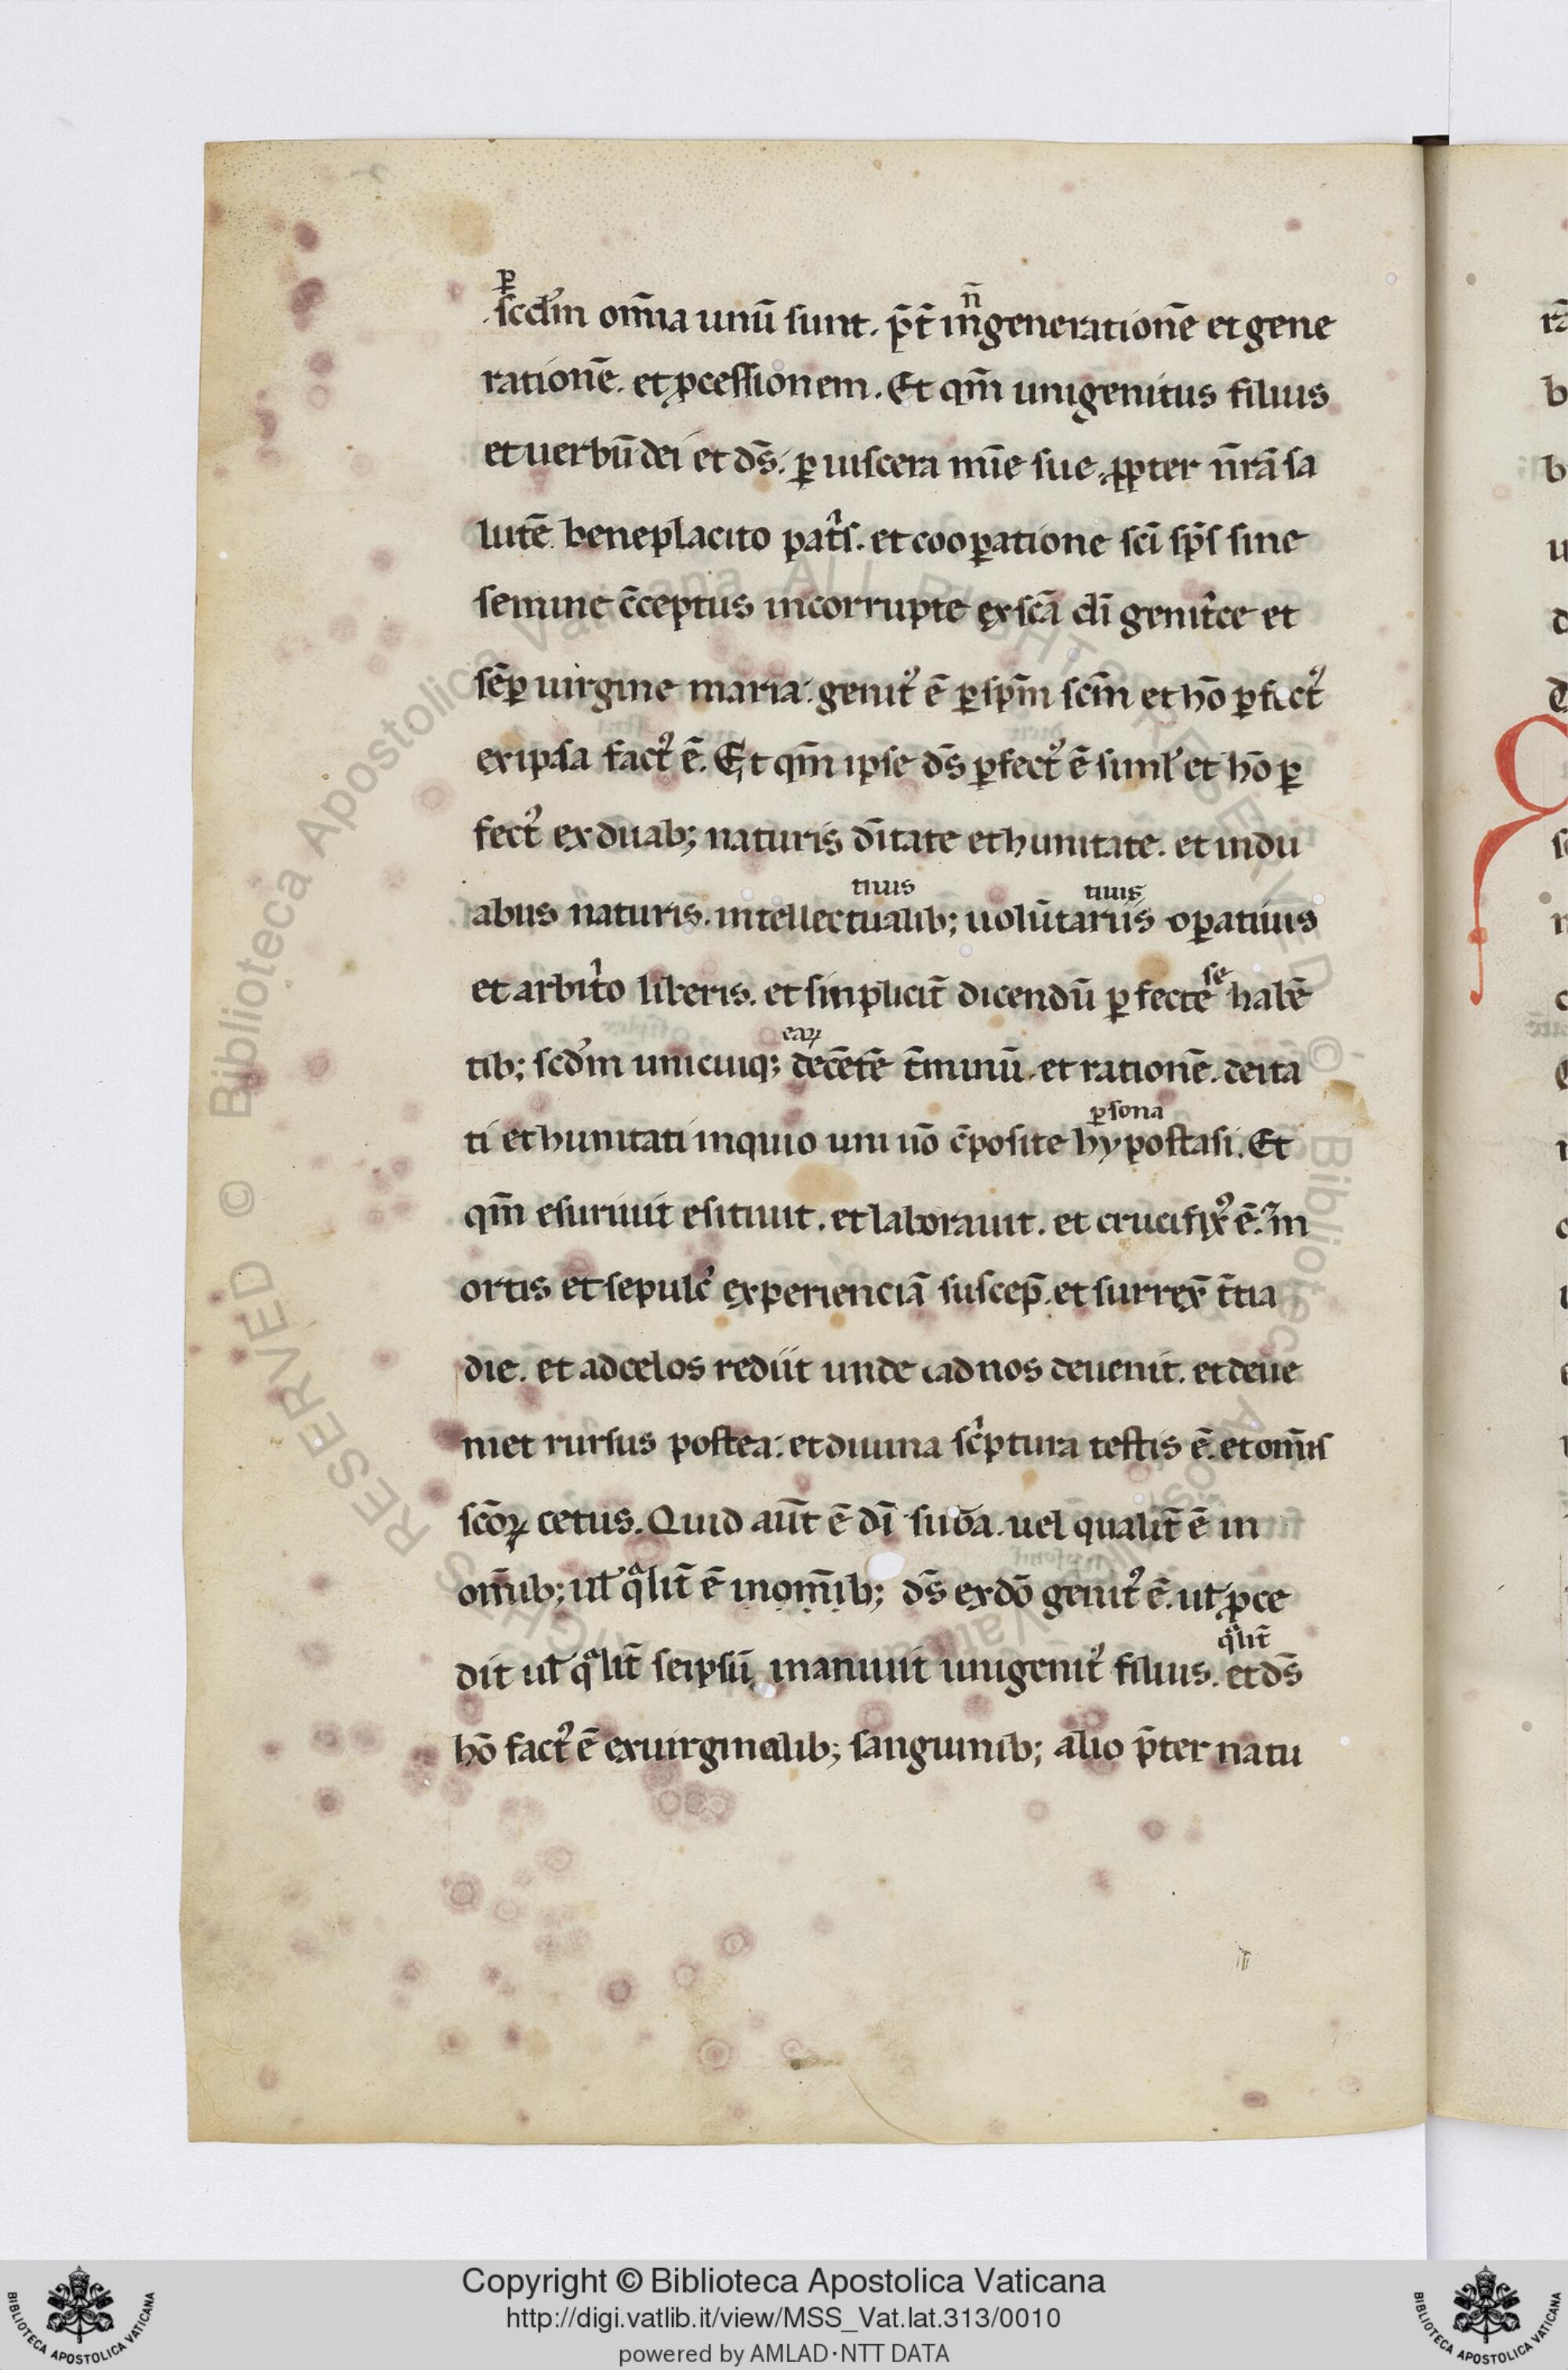 ꝑ
scdm̄ om̄ia unū sunt. p̄t̄ īngenerationē et gene
n̄
rationē. et ꝓcessionem. Et qm̄ unigenitus filius
et uerbū dei et ds̄. ꝑ uiscera mīe sue. ꝓpter nr̄ā sa
lutē beneplacito patͥs. et cooꝑatione sc̄i sp̄s sine
semine c̄ceptus incorrupte ex sc̄a dī genitͥce et
sēꝑ uirgine maria. genitꝰ ē ꝑ sp̄m sc̄m et hō ꝑfectꝰ
ex ipsa factꝰ ē. Et qm̄ ipse ds̄ ꝑfectꝰ ē simlʼ et hō ꝑ
fectꝰ ex duab; naturis dīitate et hūnitate. et in du
tiuis tiuis
abus naturis. intellectualib; uolūtariis oꝑatiuis
se
et arbitͥo liberis. et sinplicit̄ dicendū ꝑfecte habē
eaꝝ
tib; scdm̄ unicuiq; decētē t̄minū et rationē. deita
ꝑsona
ti et hūnitati inquio uni uō c̄posite hypostasi. Et
qm̄ esuriuit esitiuit. et laborauit. et crucifixꝰ ē. ⁊ m
ortis et sepulcͥ experienciā suscep̄. et surrex̄ t̄tia
die. et ad celos rediit unde ad nos deuenit. et deue
niet rursus postea. et diuina scͥptura testis ē. et om̄is
sc̄oꝝ cetus. Quid aūt ē dī suba. uel qualit̄ ē in
om̄ib; ul̄ qͣlit̄ ē in om̄ib; ds̄ ex dō genitꝰ ē. ut ꝓce
qͣlit̄
dit ul̄ qͣlit̄ seipsū inaniuit unigenitꝰ filius. et ds̄
hō factꝰ ē ex uirginalib; sanguinib; alio p̄ter natu
Copyright © Biblioteca Apostolica Vaticana
http://digi.vatlib.it/view/MSS_Vat.lat.313/0010
powered by AMLAD·NTT DATA
BIBLIOTECA APOSTOLICA VATICANA
BIBLIOTECA APOSTOLICA VATICANA